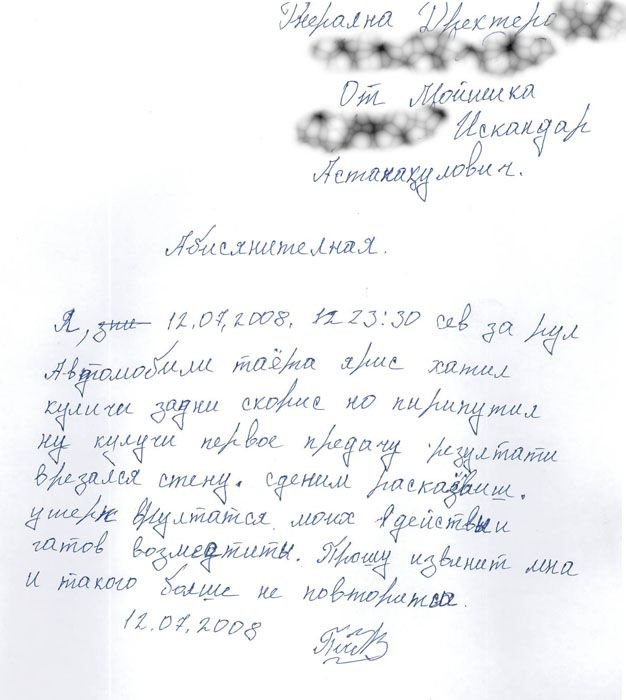 Генрална Дректеро
От Мойшика
Искандар
Астанакулович.
Абисянителная.
Я, 12.07.2008. 12 23:30 сев за рул
Автомобили таёта ярис хатил
куличи задни скорис но пирипутил
ну кулучи первое предачу резултати
врезался стену. сденим расказваиш.
ушерн врултатся моих действыи
гатов возмедтиты. Прошу извенит мна
и такого болше не повторится.
12.07.2008